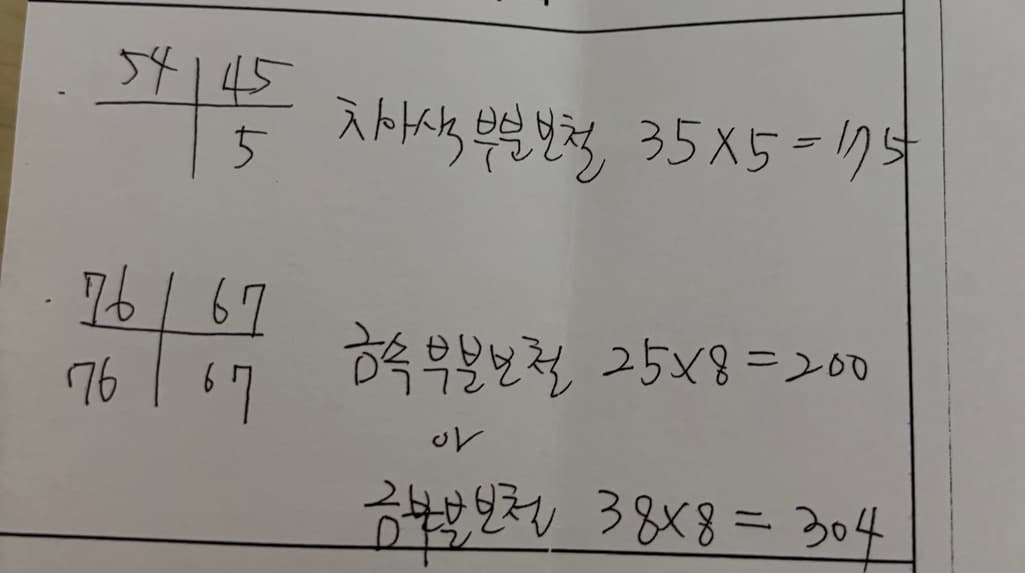 54 | 45
5 치아색 부분보철 35×5=175
76 | 67
76 | 67 금속 부분보철 25×8=200
or
금부분보철 38×8=304